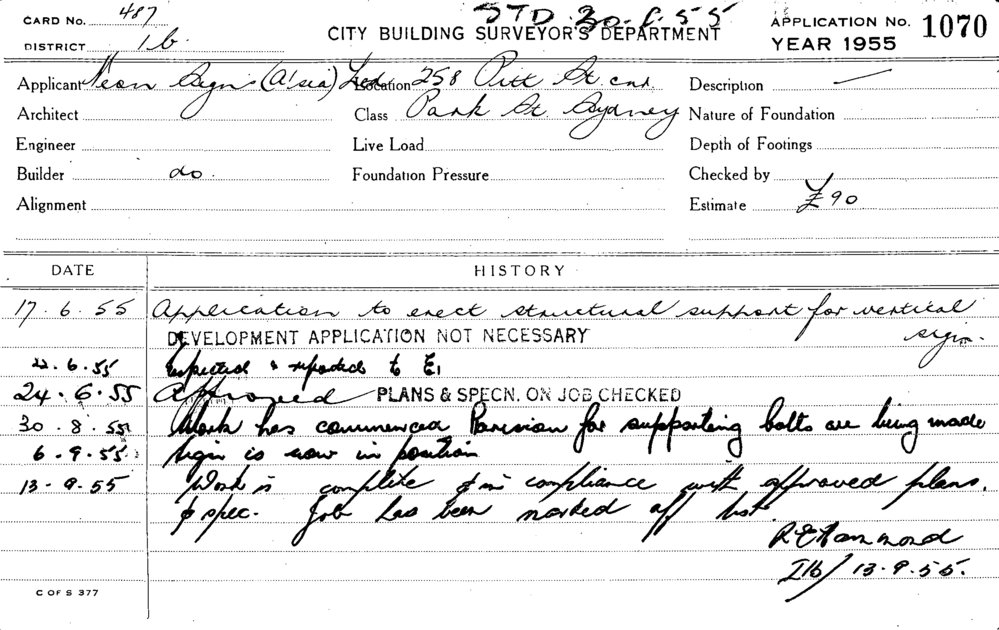 CARD No. 487
STD. 30.6.55
DISTRICT 1b
CITY BUILDING SURVEYOR'S DEPARTMENT
APPLICATION No. 1070
YEAR 1955
Applicant Neon Signs (A'sia) Ltd Location 258 Pitt St cnr Description —
Architect Class Park St. Sydney Nature of Foundation
Engineer Live Load Depth of Footings
Builder do. Foundation Pressure Checked by
Alignment Estimate £90
DATE HISTORY
17.6.55 Application to erect structural support for vertical
sign.
DEVELOPMENT APPLICATION NOT NECESSARY
22.6.55 Inspected & reported to E1
24.6.55 Approved PLANS & SPECN. ON JOB CHECKED
30.8.55 Work has commenced Provision for supporting bolts are being made
6.9.55 Sign is now in position
13.9.55 Work is complete & in compliance with approved plans.
& spec. Job has been marked off list
R E Hammond
I1b/13.9.55.
C OF S 377